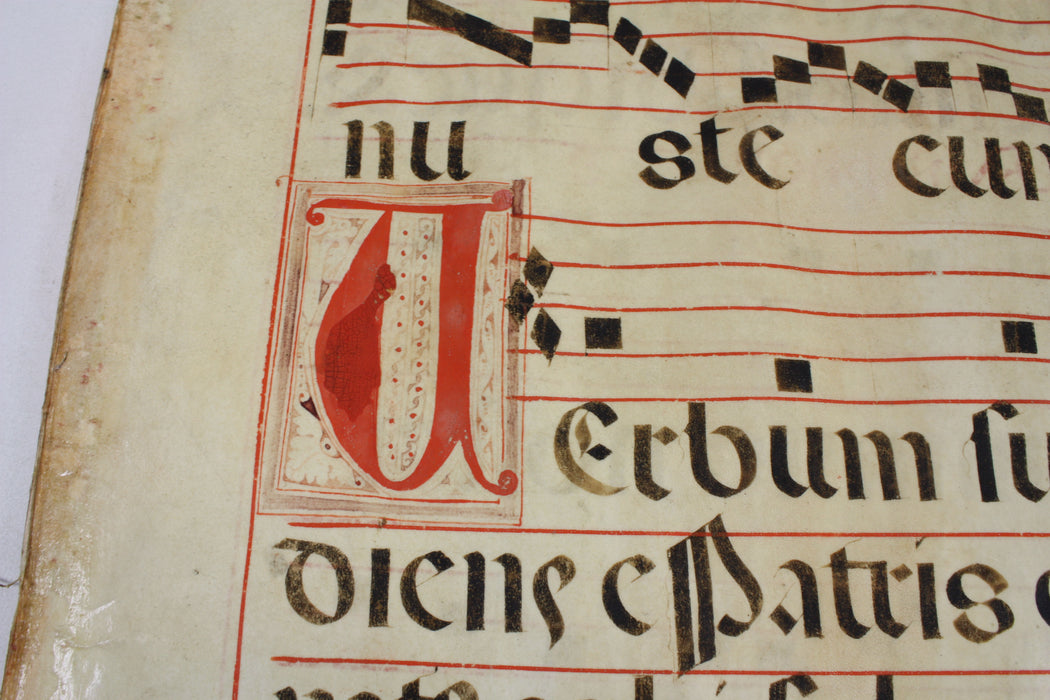 nu ste cum
VErbum ſu
diens e Patris